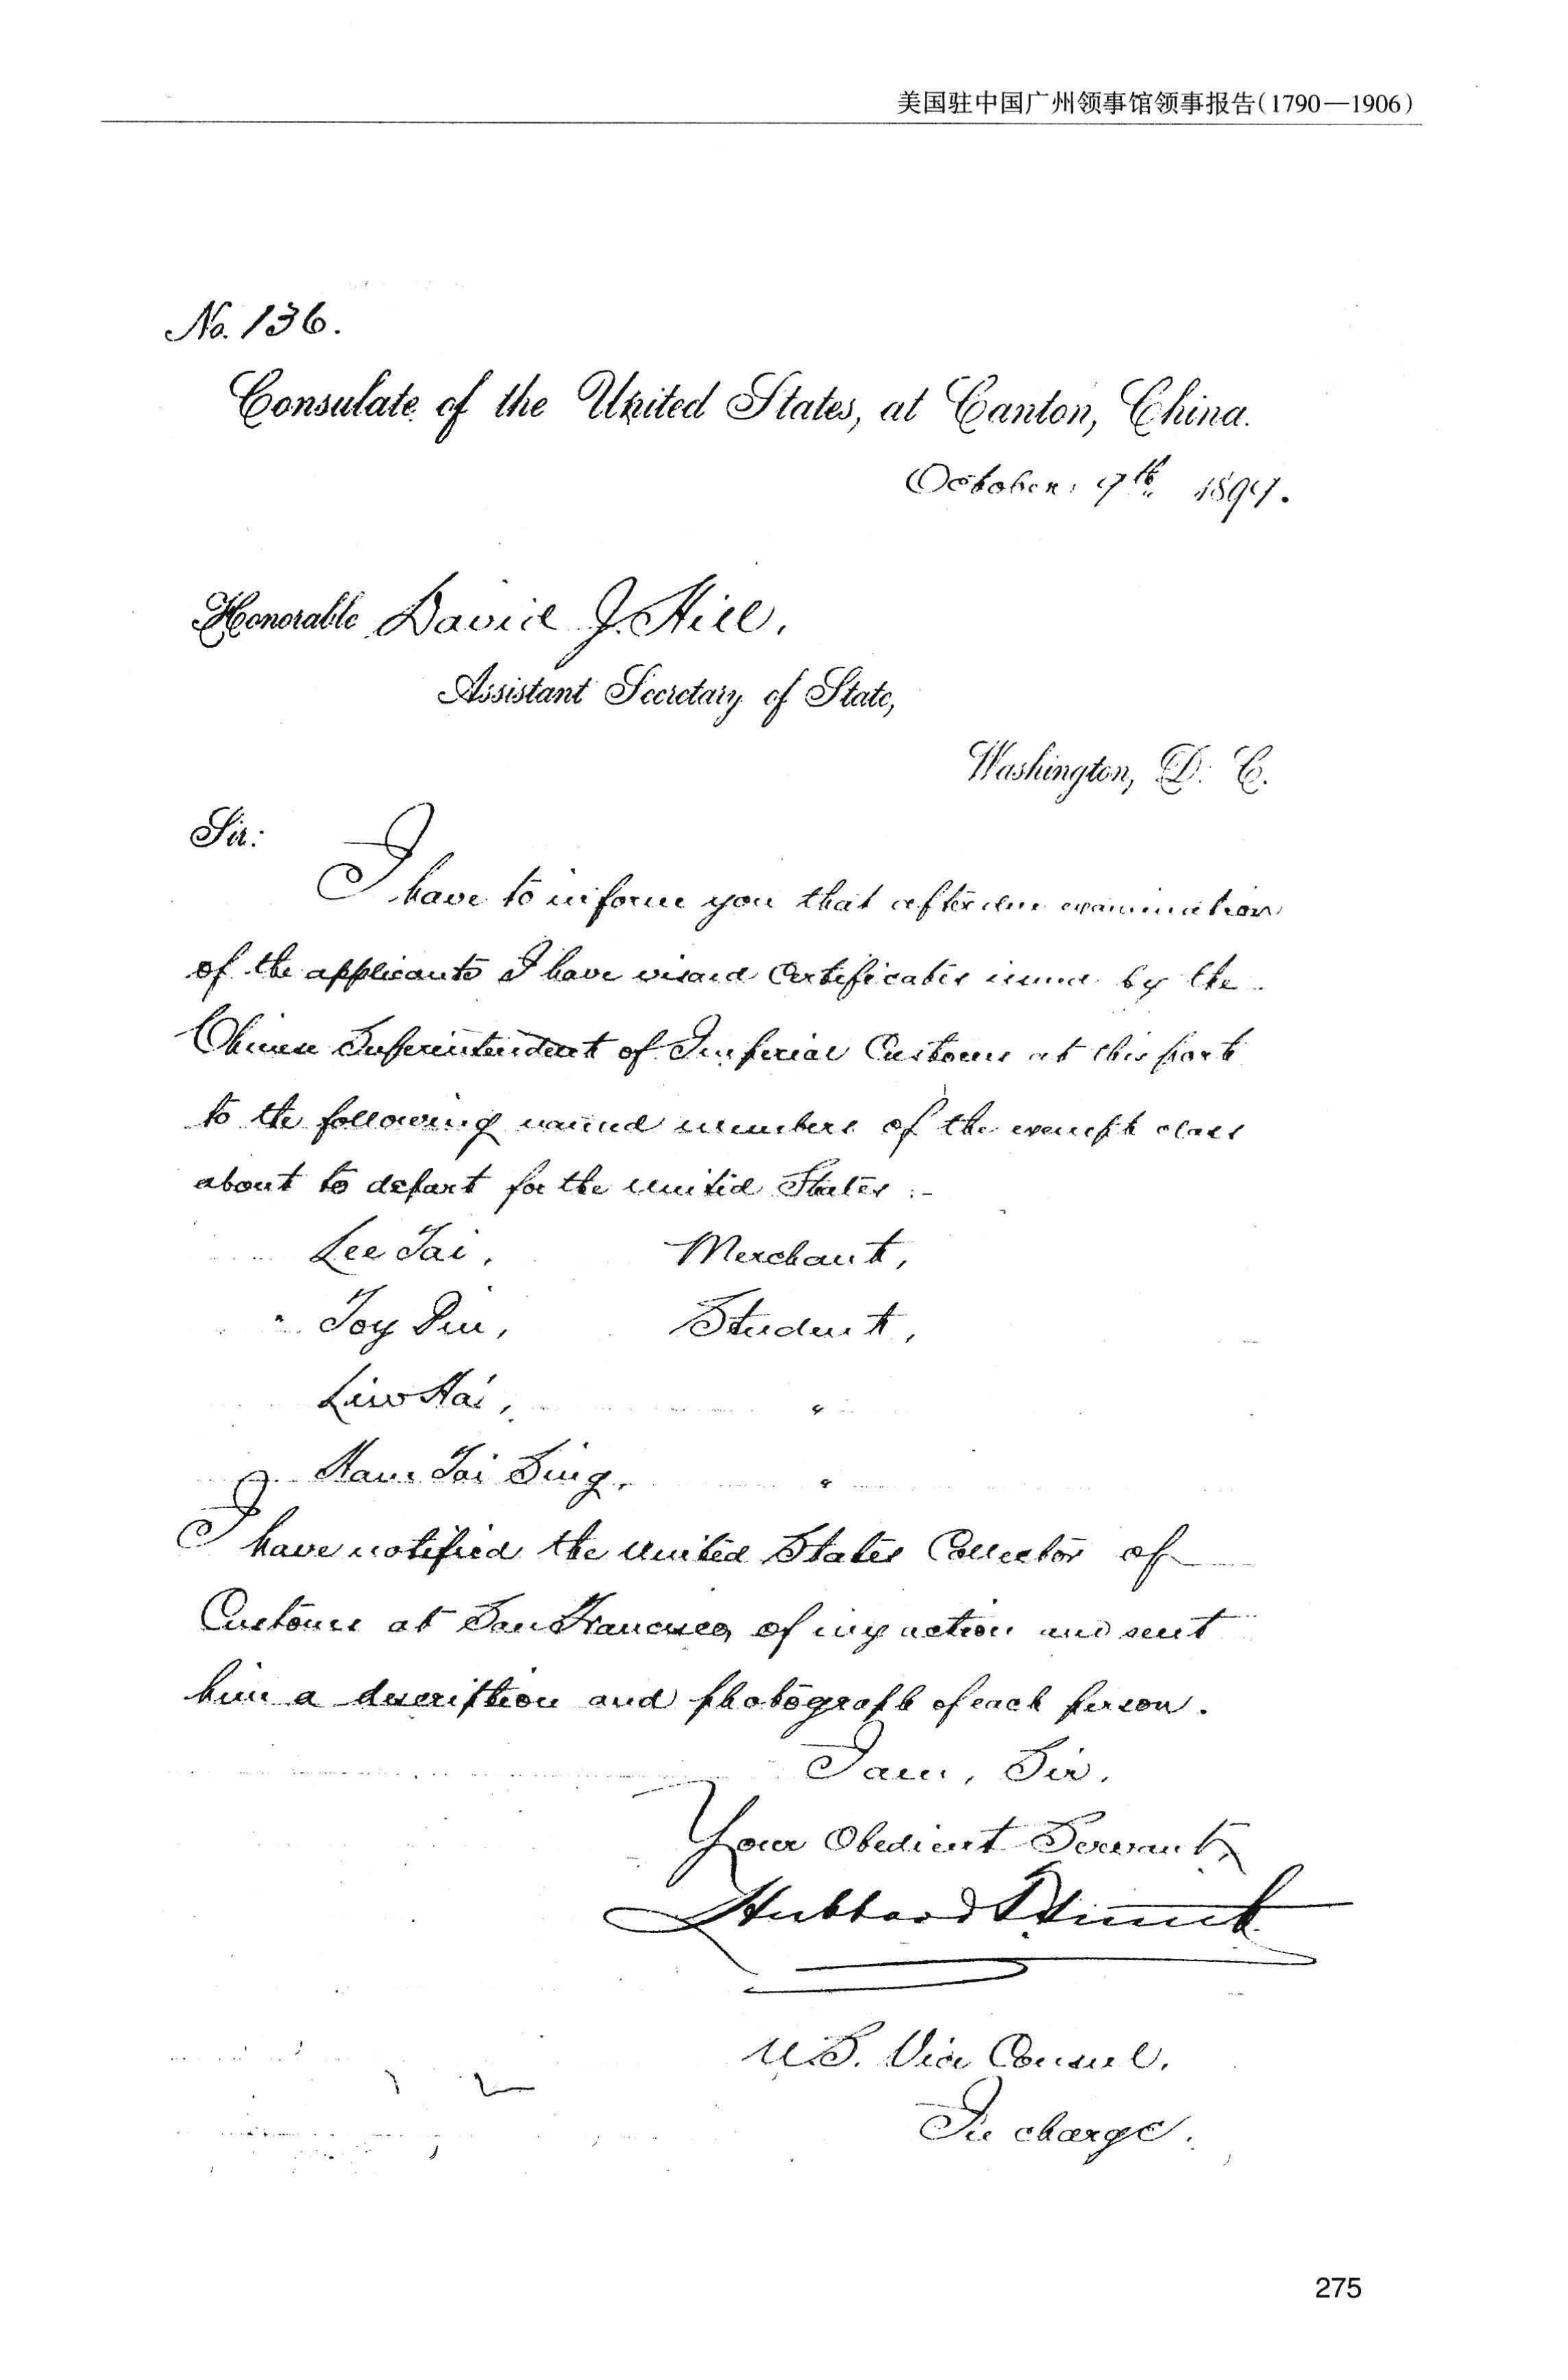 美国驻中国广州领事馆领事报告(1790—1906)
No. 136.
Consulate of the United States, at Canton, China.
October, 7th 1899.
Honorable David J. Hill,
Assistant Secretary of State,
Washington, D. C.
Sir:
I have to inform you that after due examination
of the applicants I have visaed Certificates issued by the
Chinese Superintendent of Imperial Customs at this port
to the following named members of the exempt class
about to depart for the United States :-
Lee Tai, Merchant,
Toy Din, Student,
Liw Hai, "
Ham Tai Sing, "
I have notified the United States Collector of
Customs at San Francisco, of my action and sent
him a description and photograph of each person.
I am, Sir,
Your Obedient Servant,
Hubbard T. Smith
U.S. Vice Consul,
In charge.
275